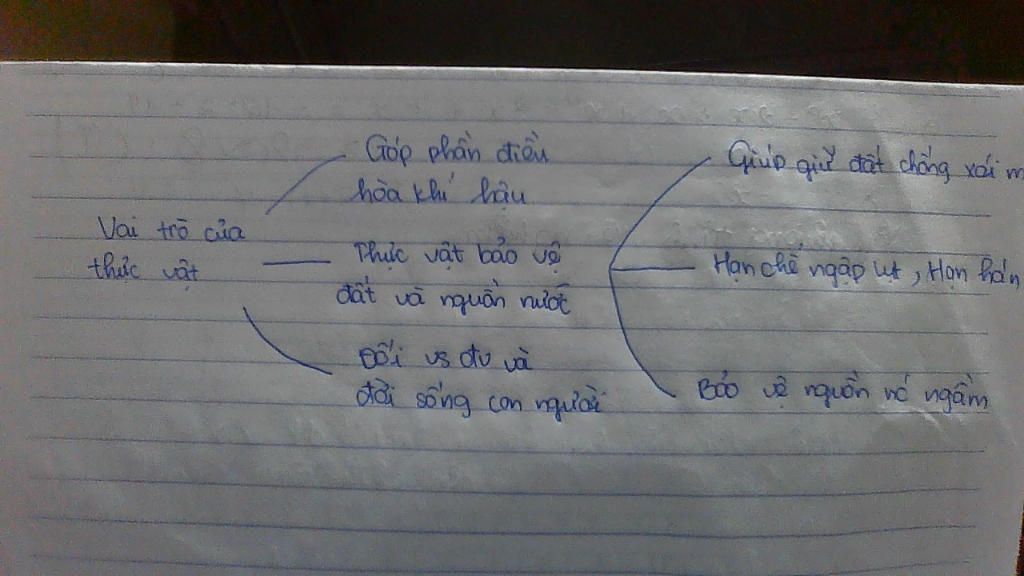 Vai trò của
thực vật
Góp phần điều
hòa khí hậu
Thực vật bảo vệ
đất và nguồn nướt
Đối vs đv và
đời sống con người
Giúp giữ đất chống xói m
Hạn chế ngập lụt, Hạn hán
Bảo vệ nguồn nớ ngầm